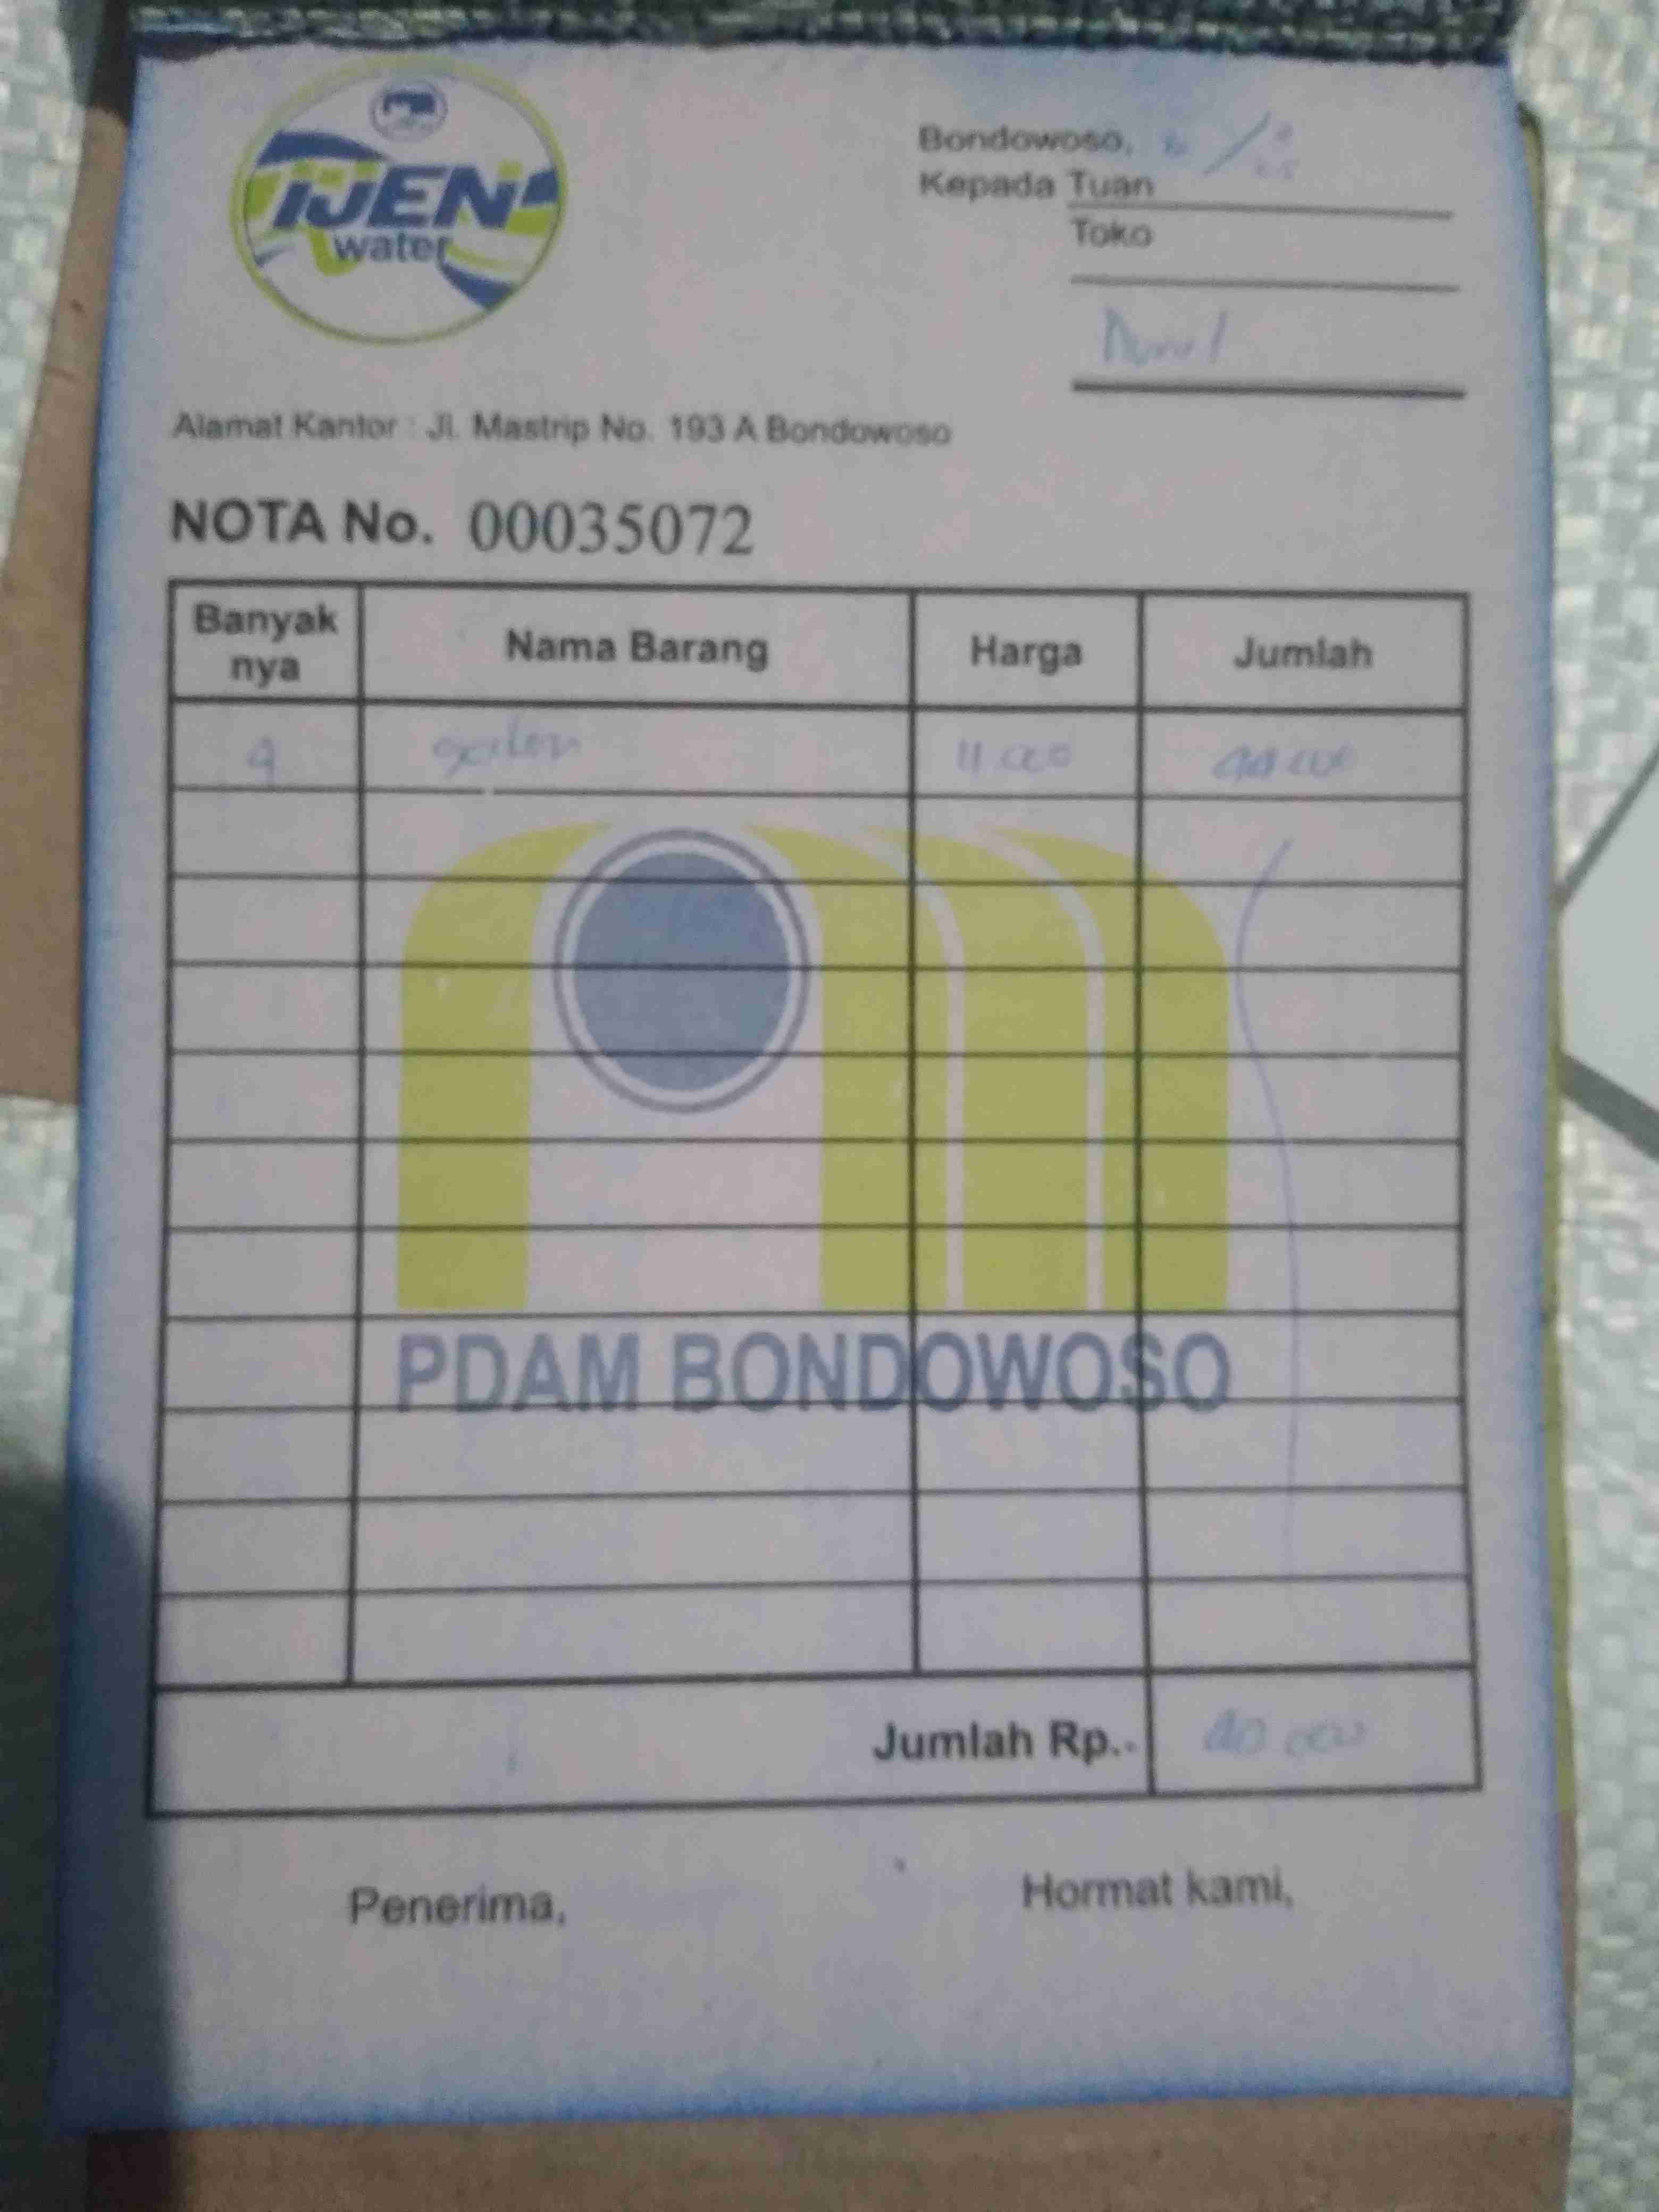 IJEN
water
Bondowoso,
Kepada Tuan
Toko
Alamat Kantor : Jl. Mastrip No. 193 A Bondowoso
NOTA No. 00035072
Banyak nya Nama Barang Harga Jumlah
4 galon 11.000 44.000
PDAM BONDOWOSO
Jumlah Rp.-
Penerima, Hormat kami,